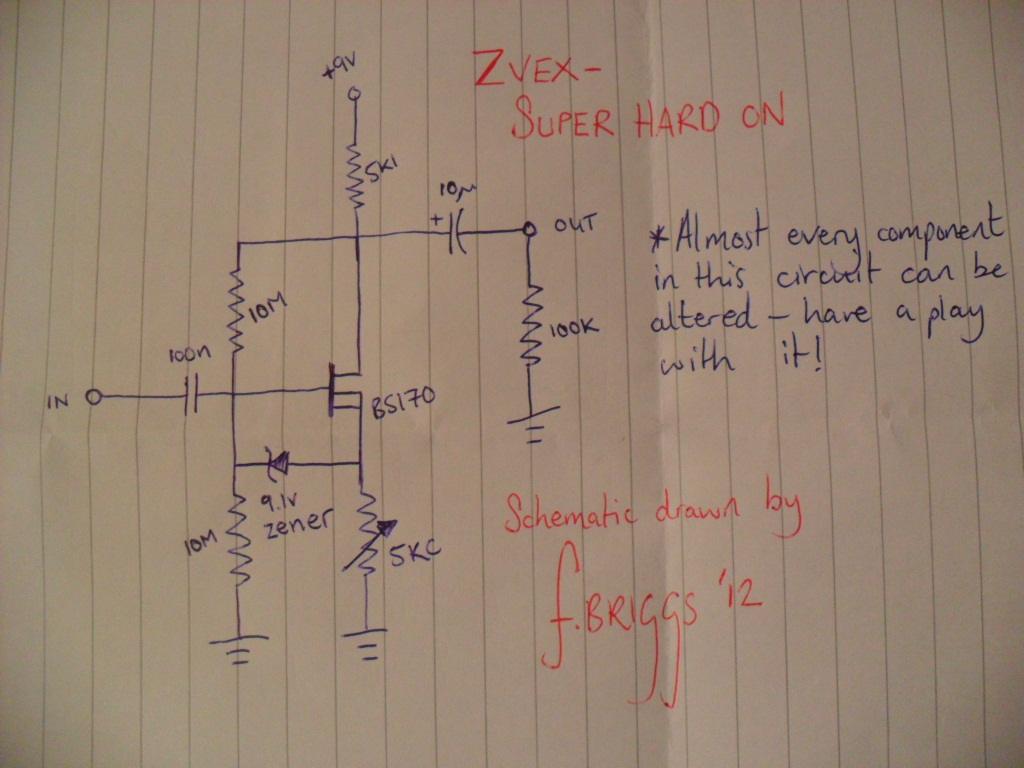 ZVEX-
SUPER HARD ON
+9V
5K1
10µ
+
OUT
10M
100K
100n
IN
BS170
9.1V
zener
10M
5KC
*Almost every component
in this circuit can be
altered - have a play
with it!
Schematic drawn by
f.BRIGGS '12